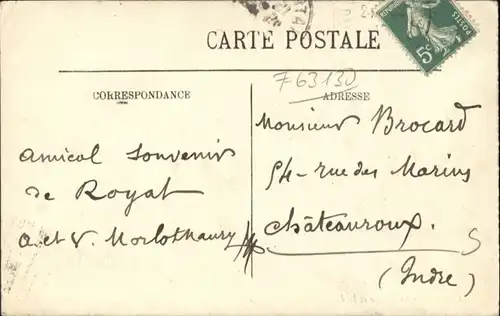 CARTE POSTALE
POSTES
5c
F63130
CORRESPONDANCE
ADRESSE
Amical souvenir
de Royat
A. et V.
Monsieur Brocard
54 - rue des Marins
Châteauroux.
(Indre)